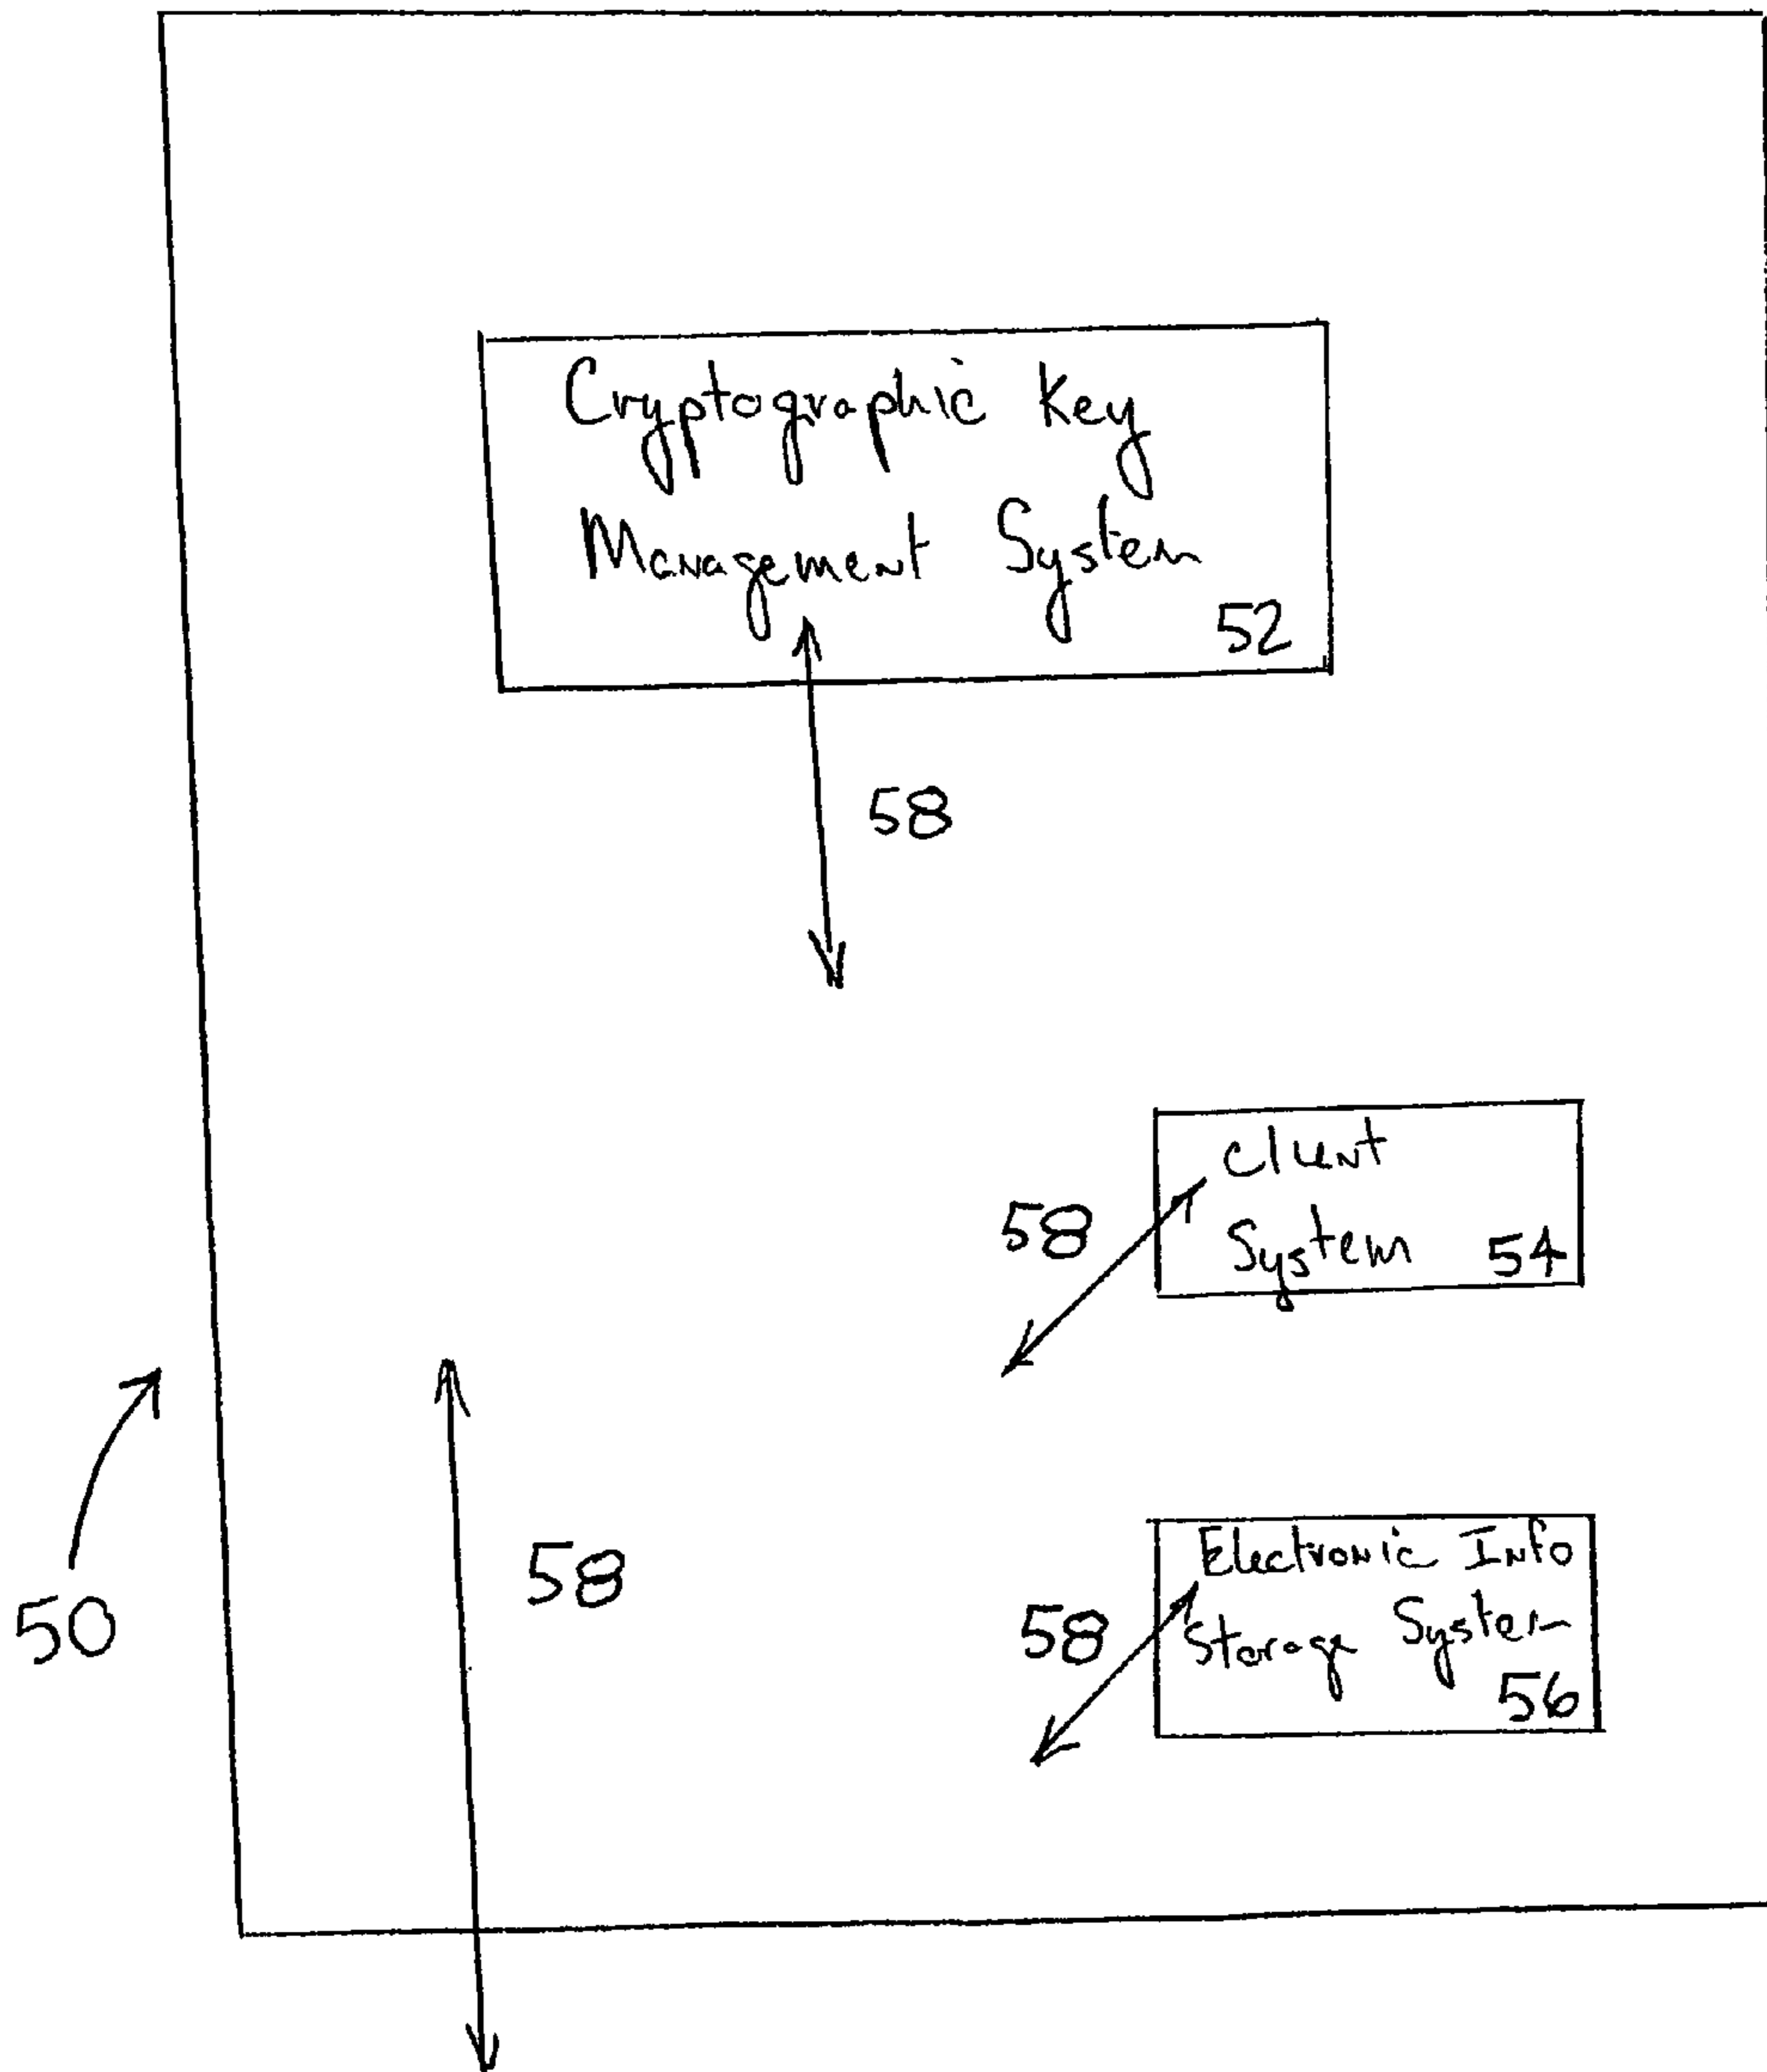 Cryptographic Key
Management System
52
58
Client
System 54
58
58
50
Electronic Info
Storage System
56
58